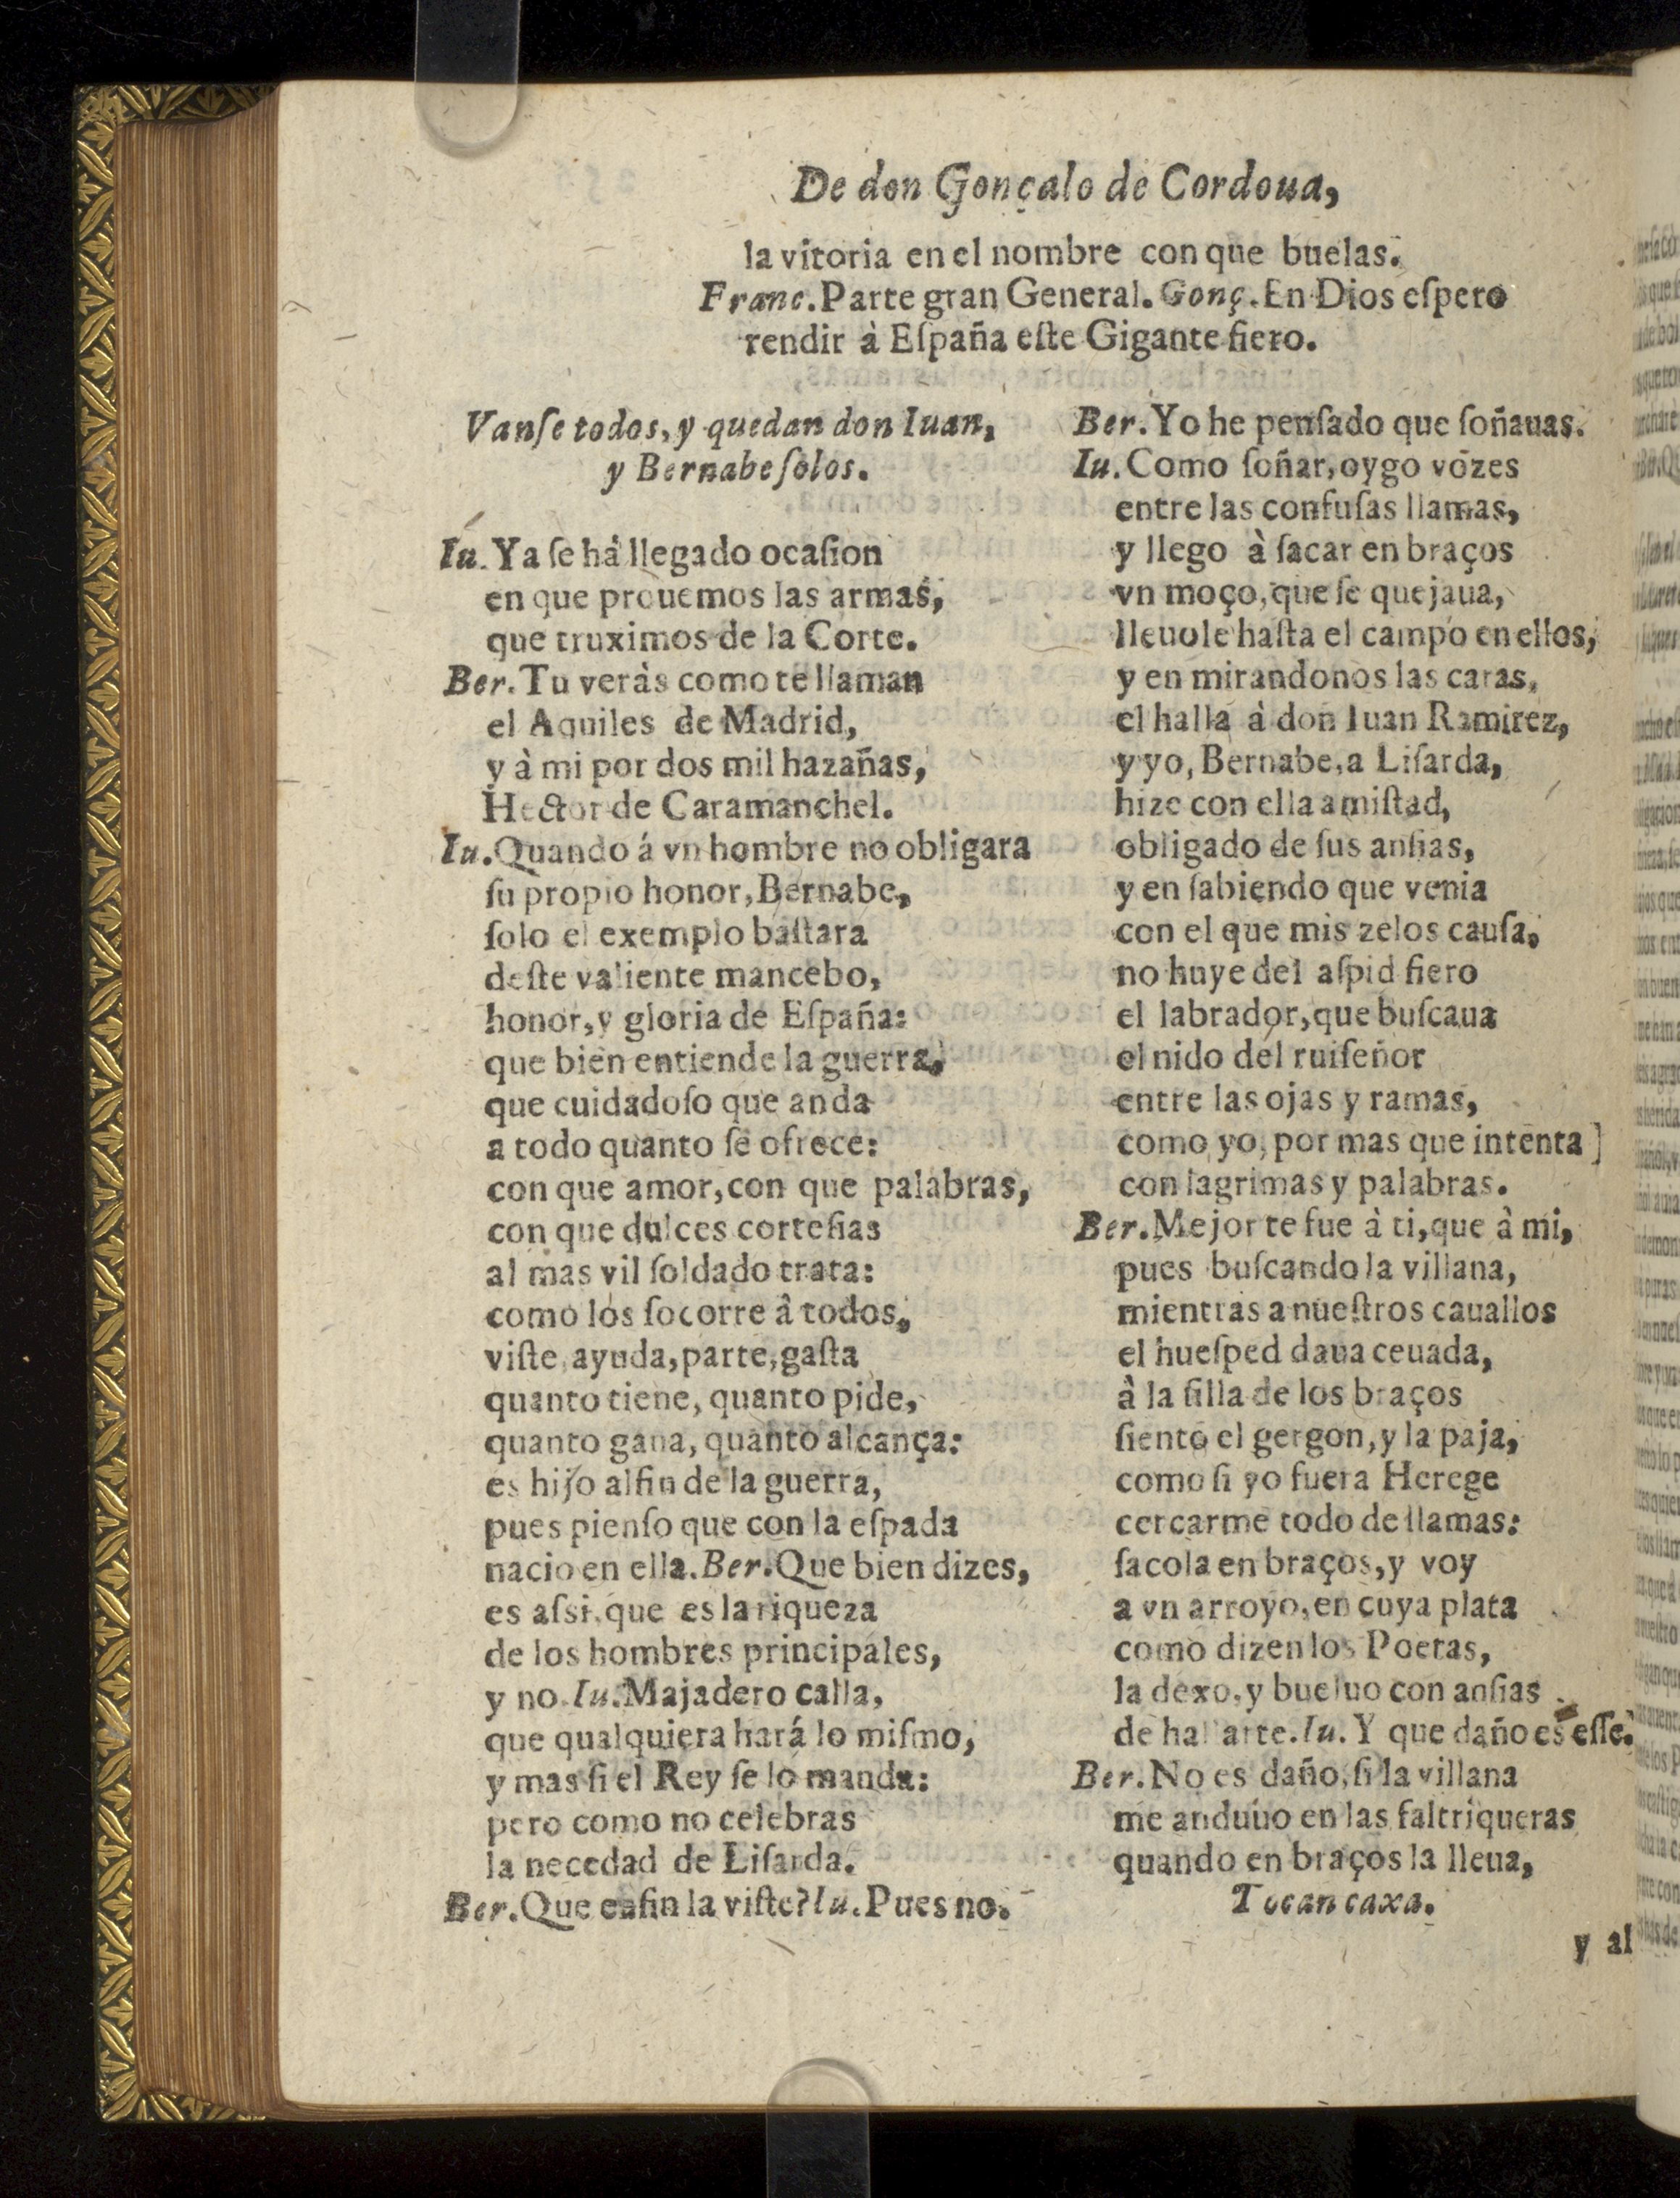 De don Gonçalo de Cordoua,
la vitoria en el nombre con que buelas.
Franc. Parte gran General. Gonç. En Dios eſpero
rendir à Eſpaña eſte Gigante fiero.
Vanſe todos, y quedan don Iuan,
y Bernabe ſolos.
Iu. Ya ſe há llegado ocaſion
en que prouemos las armas,
que truximos de la Corte.
Ber. Tu veràs como te llaman
el Aquiles de Madrid,
y à mi por dos mil hazañas,
Hector de Caramanchel.
Iu. Quando á vn hombre no obligara
ſu propio honor, Bernabe,
ſolo el exemplo baſtara
deſte valiente mancebo,
honor, y gloria de Eſpaña:
que bien entiende la guerra,
que cuidadoſo que anda
a todo quanto ſe ofrece:
con que amor, con que palabras,
con que dulces corteſias
al mas vil ſoldado trata:
como los ſocorre â todos,
viſte, ayuda, parte, gaſta
quanto tiene, quanto pide,
quanto gana, quanto alcança:
es hijo alfin de la guerra,
pues pienſo que con la eſpada
nacio en ella. Ber. Que bien dizes,
es aſsi, que es la riqueza
de los hombres principales,
y no. Iu. Majadero calla,
que qualquiera hará lo miſmo,
y mas ſi el Rey ſe lo manda:
pero como no celebras
la necedad de Liſarda.
Ber. Que enfin la viſte? Iu. Pues no.
Ber. Yo he penſado que ſoñauas.
Iu. Como ſoñar, oygo vozes
entre las confuſas llamas,
y llego à ſacar en braços
vn moço, que ſe quejaua,
lleuole haſta el campo en ellos,
y en mirandonos las caras,
el halla à don Iuan Ramirez,
y yo, Bernabe, a Liſarda,
hize con ella amiſtad,
obligado de ſus anſias,
y en ſabiendo que venia
con el que mis zelos cauſa,
no huye del aſpid fiero
el labrador, que buſcaua
el nido del ruiſeñor
entre las ojas y ramas,
como yo, por mas que intenta]
con lagrimas y palabras.
Ber. Mejor te fue à ti, que â mi,
pues buſcando la villana,
mientras a nueſtros cauallos
el hueſped daua ceuada,
à la ſilla de los braços
ſiento el gergon, y la paja,
como ſi yo fuera Herege
cercarme todo de llamas:
ſacola en braços, y voy
a vn arroyo, en cuya plata
como dizen los Poetas,
la dexo, y bueluo con anſias
de hallarte. Iu. Y que daño es eſſe.
Ber. No es daño, ſi la villana
me anduuo en las faltriqueras
quando en braços la lleua,
Tocan caxa.
y al